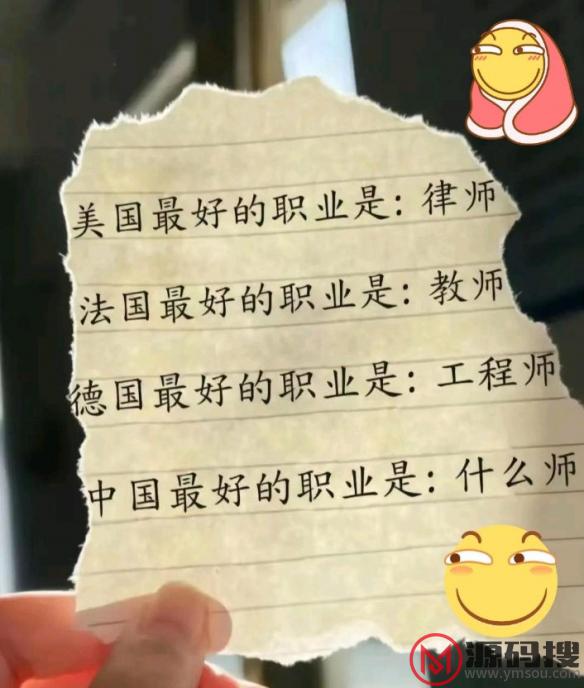 美国最好的职业是：律师
法国最好的职业是：教师
德国最好的职业是：工程师
中国最好的职业是：什么师
源码搜
www.ymsou.com